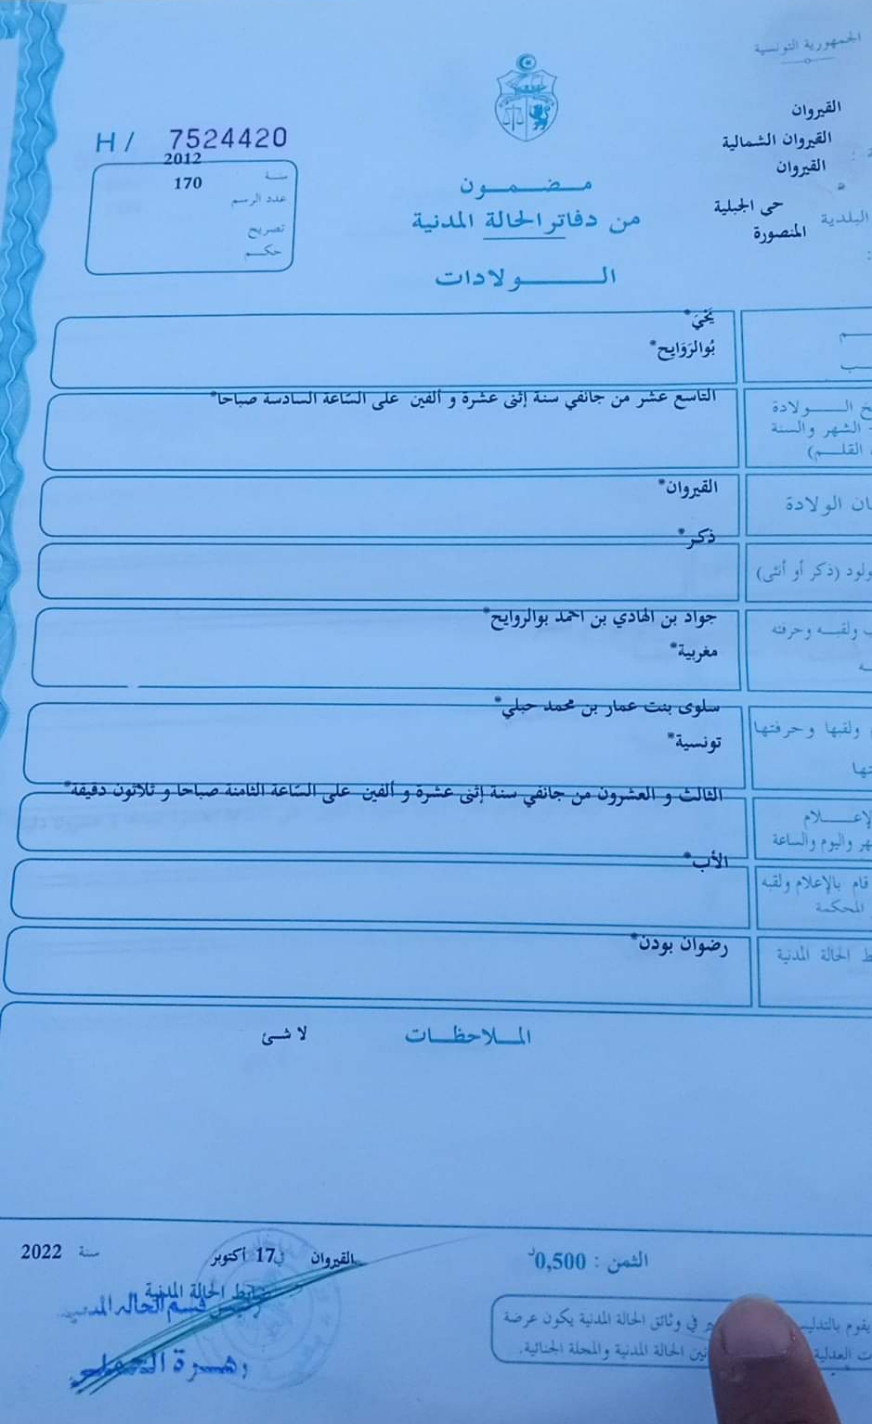 الجمهورية التونسية
القيروان
القيروان الشمالية
القيروان
حى الجبلية
البلدية
المنصورة
H / 7524420
سنة 2012
عدد الرسم 170
تصريح
حكم
مضمون
من دفاتر الحالة المدنية
الولادات
يَحْيَ*
بُوالرَوَايح*
الولادة
الشهر والسنة
القلم)
التاسع عشر من جانفي سنة إثنى عشرة و ألفين على السّاعة السادسة صباحا*
الولادة
القيروان*
(ذكر أو أنثى)
ذكر*
ولقبه وحرفته
جواد بن الهادي بن احمد بوالروايح*
مغربية*
ولقبها وحرفتها
سلوى بنت عمار بن محمد حبلي*
تونسية*
واليوم والساعة
الثالث و العشرون من جانفي سنة إثنى عشرة و ألفين على السّاعة الثامنة صباحا و ثلاثون دقيقة*
قام بالإعلام ولقبه
المحكمة
الأب*
الحالة المدنية
رضوان بودن*
الملاحظات
لا شئ
القيروان في 17 أكتوبر سنة 2022
الثمن : 0,500د
ضابط الحالة المدنية
رئيس قسم الحالة المدنية
يقوم بالتدليس في وثائق الحالة المدنية يكون عرضة
العدلية الحالة المدنية والمجلة الجنائية.